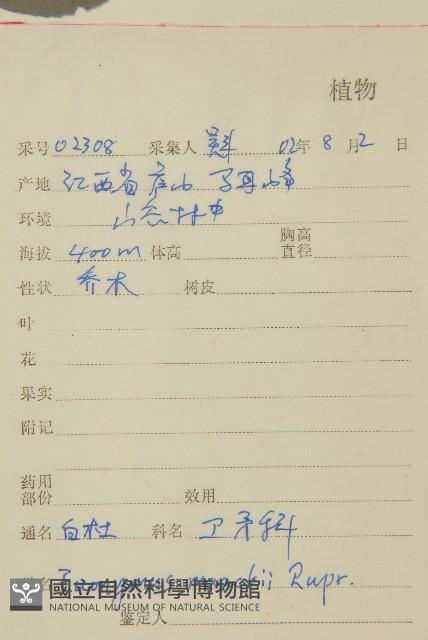 植物
采号 02308 采集人 02年 8月 2日
产地 江西省庐山
环境 山谷林中
海拔 400m 体高 胸高直径
性状 乔木 树皮
叶
花
果实
附记
药用部份 效用
通名 白杜 科名 卫矛科
Rupr.
國立自然科學博物館
NATIONAL MUSEUM OF NATURAL SCIENCE
鉴定人